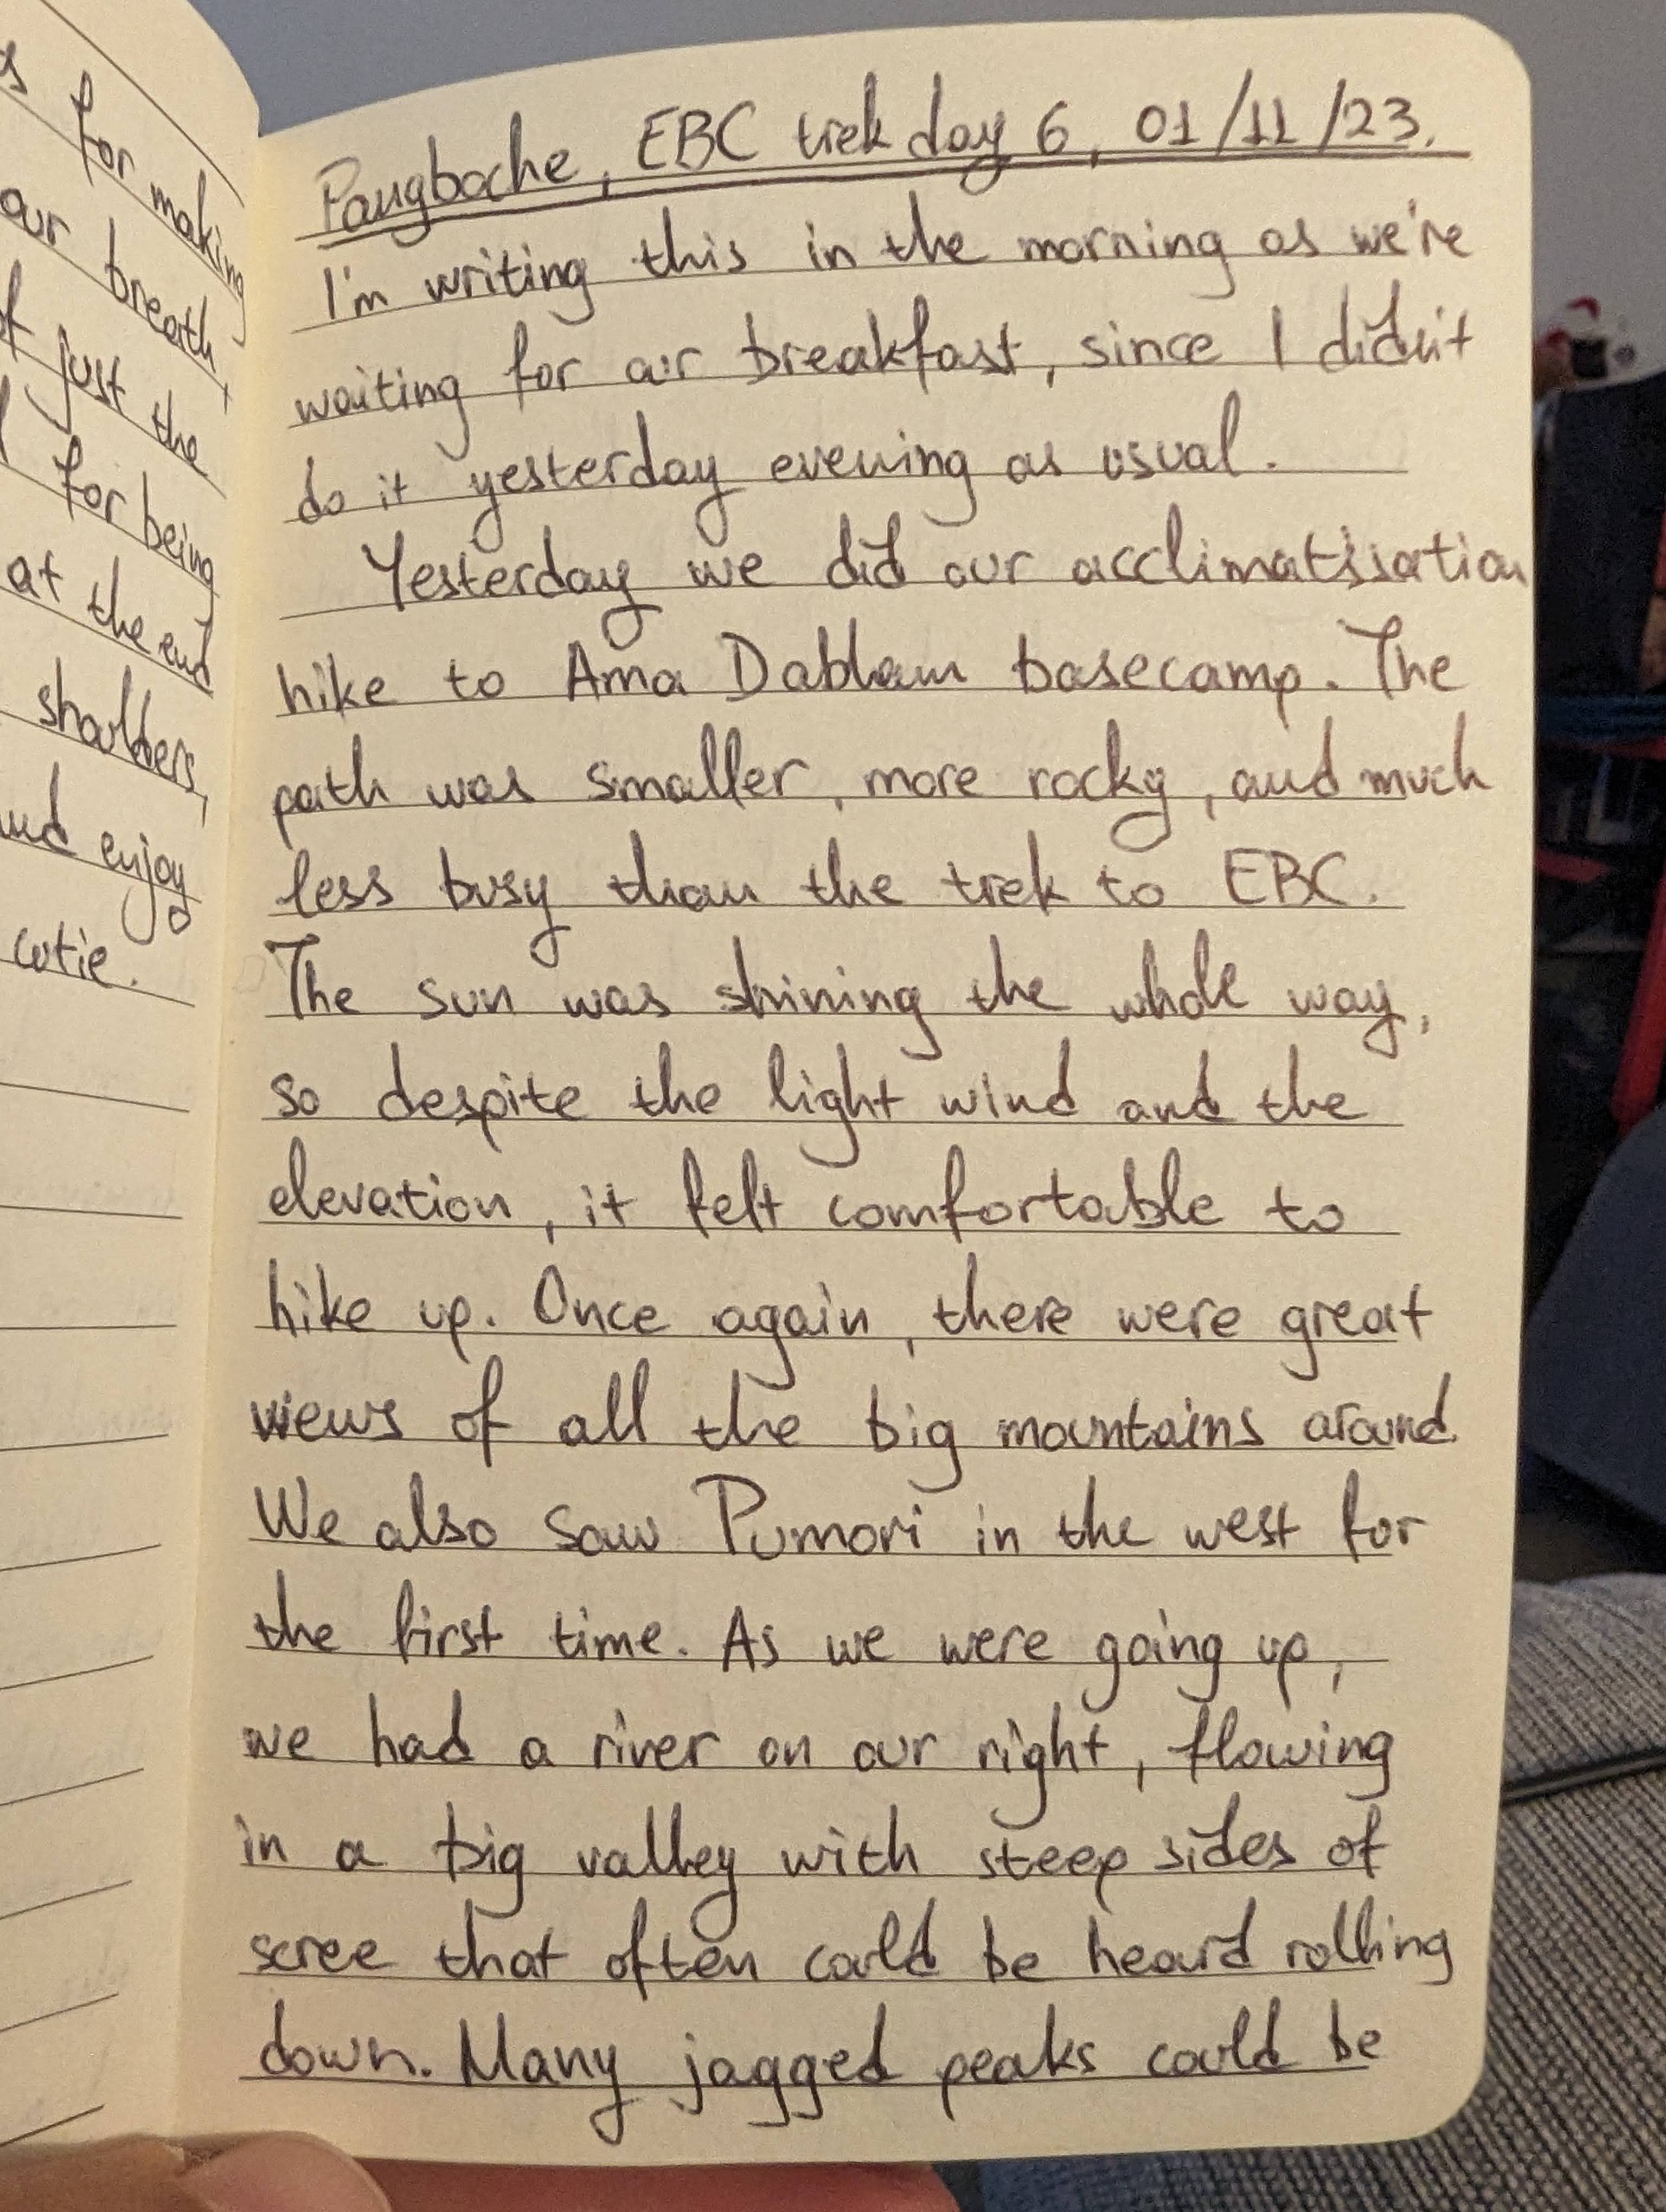 for making
our breath,
just the
for being
at the end
shoulders,
enjoy
cutie.
Pangboche, EBC trek day 6, 01/11/23.
I'm writing this in the morning as we're
waiting for our breakfast, since I didn't
do it yesterday evening as usual.
Yesterday we did our acclimatisation
hike to Ama Dablam basecamp. The
path was smaller, more rocky, and much
less busy than the trek to EBC.
The sun was shining the whole way,
so despite the light wind and the
elevation, it felt comfortable to
hike up. Once again, there were great
views of all the big mountains around.
We also saw Pumori in the west for
the first time. As we were going up,
we had a river on our right, flowing
in a big valley with steep sides of
scree that often could be heard rolling
down. Many jagged peaks could be